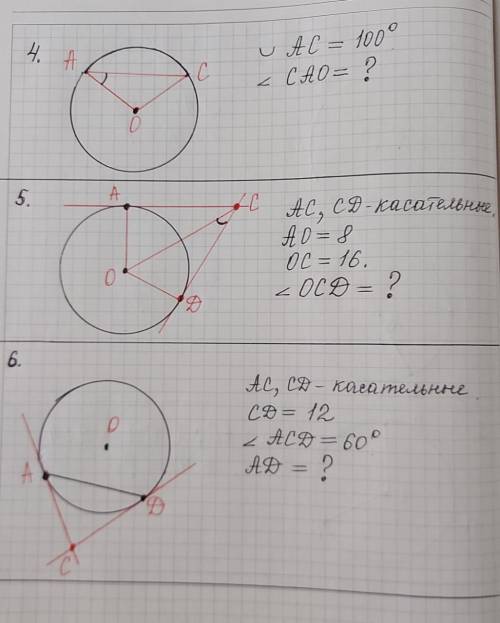 4.
A
C
O
◡ AC = 100°
∠ CAO = ?
5.
A
C
O
D
AC, CD - касательные
AO = 8
OC = 16.
∠ OCD = ?
6.
O
A
D
C
AC, CD - касательные
CD = 12
∠ ACD = 60°
AD = ?